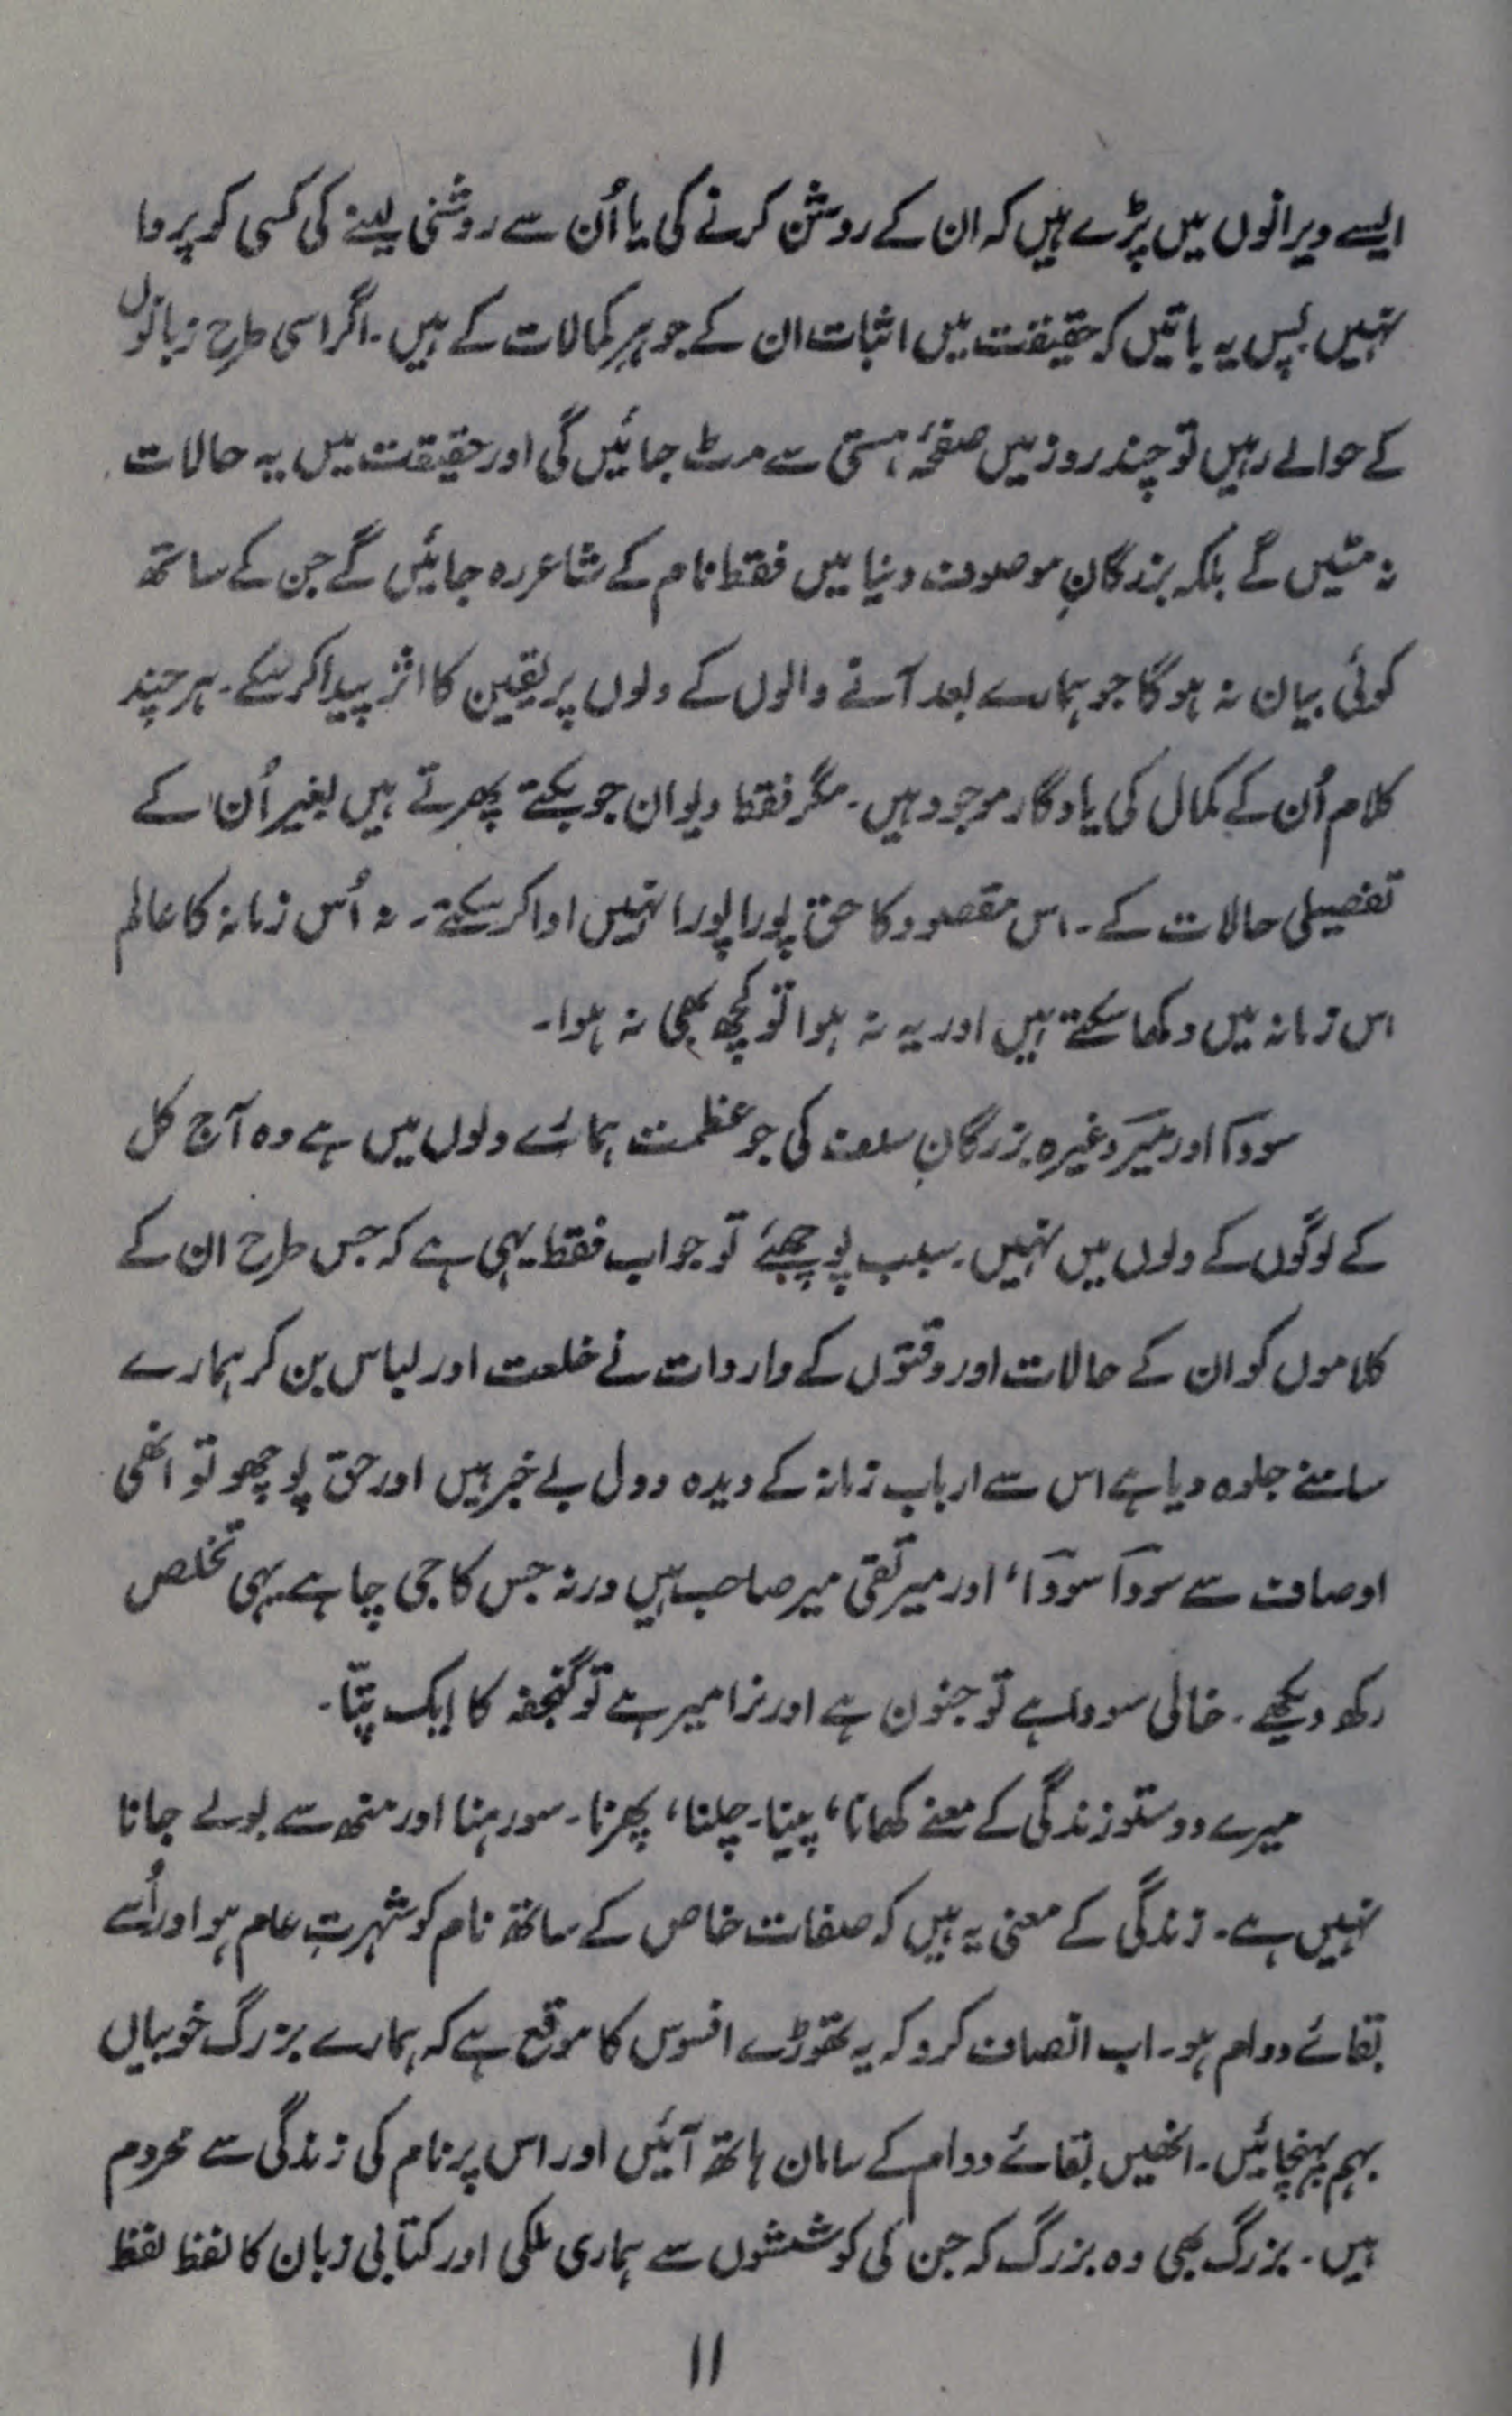 ایسے ویرانوں میں پڑے ہیں کہ ان کے روشن کرنے کی یا اُن سے روشنی لینے کی کسی کو پروا
نہیں پس یہ باتیں کہ حقیقت میں اثبات ان کے جوہر کمالات کے ہیں۔ اگر اسی طرح زبانوں
کے حوالے رہیں تو چند روز میں صفحۂ ہستی سے مٹ جائیں گی اور حقیقت میں یہ حالات
نہ مٹیں گے بلکہ بزرگانِ موصوف دنیا میں فقط نام کے شاعر رہ جائیں گے جن کے ساتھ
کوئی بیان نہ ہوگا جو ہمارے بعد آنے والوں کے دلوں پر یقین کا اثر پیدا کر سکے۔ ہر چند
کلام اُن کے کمال کی یادگار موجود ہیں۔ مگر فقط دیوان جو بکتے پھرتے ہیں بغیر اُن کے
تفصیلی حالات کے۔ اس مقصود کا حق پورا پورا نہیں ادا کر سکتے۔ نہ اُس زمانہ کا عالم
اس زمانہ میں دکھا سکتے ہیں اور یہ نہ ہوا تو کچھ بھی نہ ہوا۔
سوداؔ اور میرؔ وغیرہ بزرگانِ سلف کی جو عظمت ہمارے دلوں میں ہے وہ آج کل
کے لوگوں کے دلوں میں نہیں۔ سبب پوچھئے تو جواب فقط یہی ہے کہ جس طرح ان کے
کلاموں کو ان کے حالات اور وقتوں کے واردات نے خلعت اور لباس بن کر ہمارے
سامنے جلوہ دیا ہے اس سے ارباب زمانہ کے دیدہ و دل بے خبر ہیں اور حق پوچھو تو انھی
اوصاف سے سوداؔ سوداؔ، اور میر تقی میر صاحب ہیں ورنہ جس کا جی چاہے یہی تخلص
رکھ دیکھے۔ خالی سودا ہے تو جنون ہے اور نرا میر ہے تو گنجفہ کا ایک پتّا۔
میرے دوستو زندگی کے معنے کھانا، پینا۔ چلنا، پھرنا۔ سو رہنا اور منھ سے بولے جانا
نہیں ہے۔ زندگی کے معنی یہ ہیں کہ صفات خاص کے ساتھ نام کو شہرتِ عام ہو اور اُسے
بقائے دوام ہو۔ اب انصاف کرو کہ یہ تھوڑے افسوس کا موقع ہے کہ ہمارے بزرگ خوبیاں
بہم پہنچائیں۔ انھیں بقائے دوام کے سامان ہاتھ آئیں اور اس پر نام کی زندگی سے محروم
ہیں۔ بزرگ بھی وہ بزرگ کہ جن کی کوششوں سے ہماری ملکی اور کتابی زبان کا لفظ لفظ
۱۱